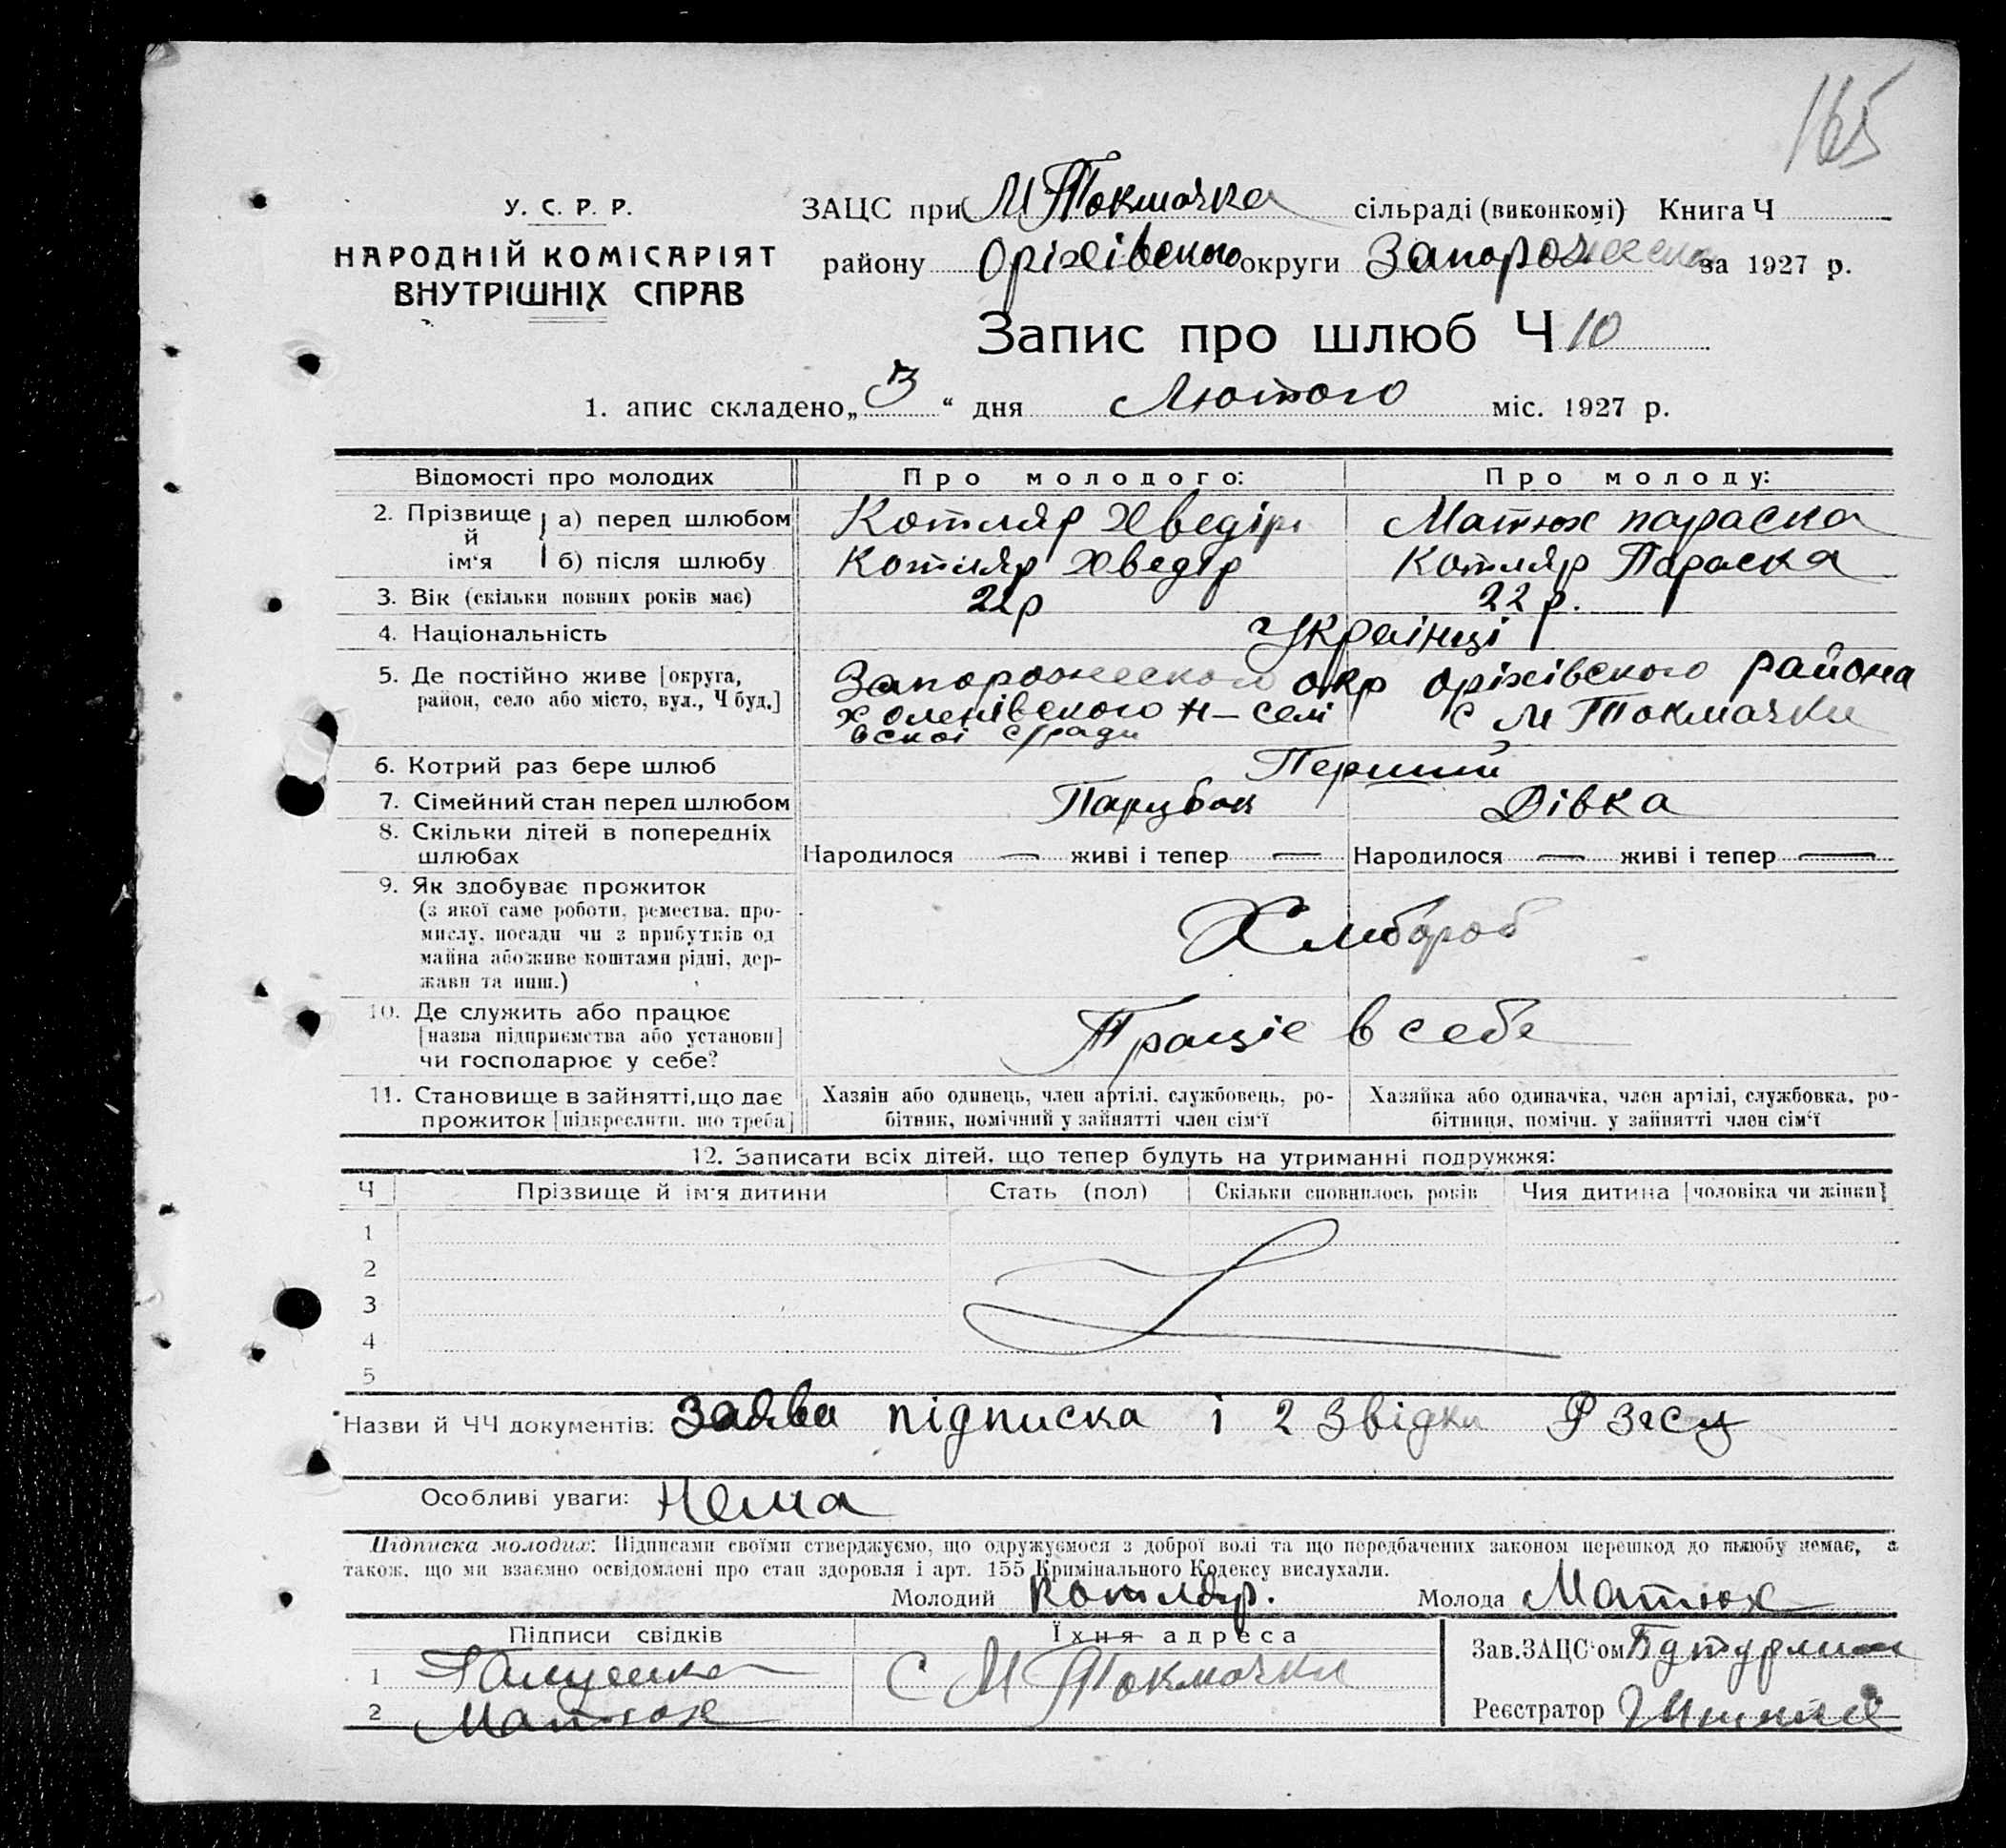 165
У. С. Р. Р.
НАРОДНІЙ КОМІСАРІЯТ
ВНУТРІШНІХ СПРАВ
ЗАЦС при М Токмачка сільраді (виконкомі) Книга Ч
району Оріхівського округи Запорожська за 1927 р.
Запис про шлюб Ч 10
1. апис складено „ 3 “ дня Лютого міс. 1927 р.
Відомості про молодих Про молодого: Про молоду:
2. Прізвище й ім‘я а) перед шлюбом Котляр Хведір Матюх параска
б) після шлюбу Котляр Хведір Котляр Параска
3. Вік (скільки повних років має) 22р 22 р.
4. Національність Українці
5. Де постійно живе [округа, Запорожського окр Оріхівского района
район, село або місто, вул., Ч буд.] х оленівского Н-селі с М Токмачки
вскоі с/ради
6. Котрий раз бере шлюб Перший
7. Сімейний стан перед шлюбом Парубок Дівка
8. Скільки дітей в попередніх
шлюбах Народилося — живі і тепер — Народилося — живі і тепер —
9. Як здобуває прожиток
(з якої саме роботи, ремества, про-
мислу, посади чи з прибутків од Хлибороб
майна або живе коштами рідні, дер-
жави та инш.)
10. Де служить або працює
[назва підприємства або установи] Праціе в себе
чи господарює у себе?
11. Становище в зайнятті, що дає Хазяін або одинець, член артілі, службовець, ро- Хазяйка або одиначка, член артілі, службовка, ро-
прожиток [підкреслити, що треба] бітник, помічний у зайнятті член сім‘ї бітниця, помічн. у зайнятті член сім‘ї
12. Записати всіх дітей, що тепер будуть на утриманні подружжя:
Ч Прізвище й ім‘я дитини Стать (пол) Скільки сповнилось років Чия дитина [чоловіка чи жінки]
1
2
3
4
5
Назви й ЧЧ документів: Заява підписка і 2 Звідки Р Загсу
Особливі уваги: Нема
Підписка молодих: Підписами своїми стверджуємо, що одружуємося з доброї волі та що передбачених законом перешкод до шлюбу немає, а
також, що ми взаємно освідомлені про стан здоровля і арт. 155 Кримінального Кодексу вислухали.
Молодий Котляр. Молода Матюх
Підписи свідків Їхня адреса Зав. ЗАЦС‘ом
1 С М Токмачки
2 Матюх Реєстратор